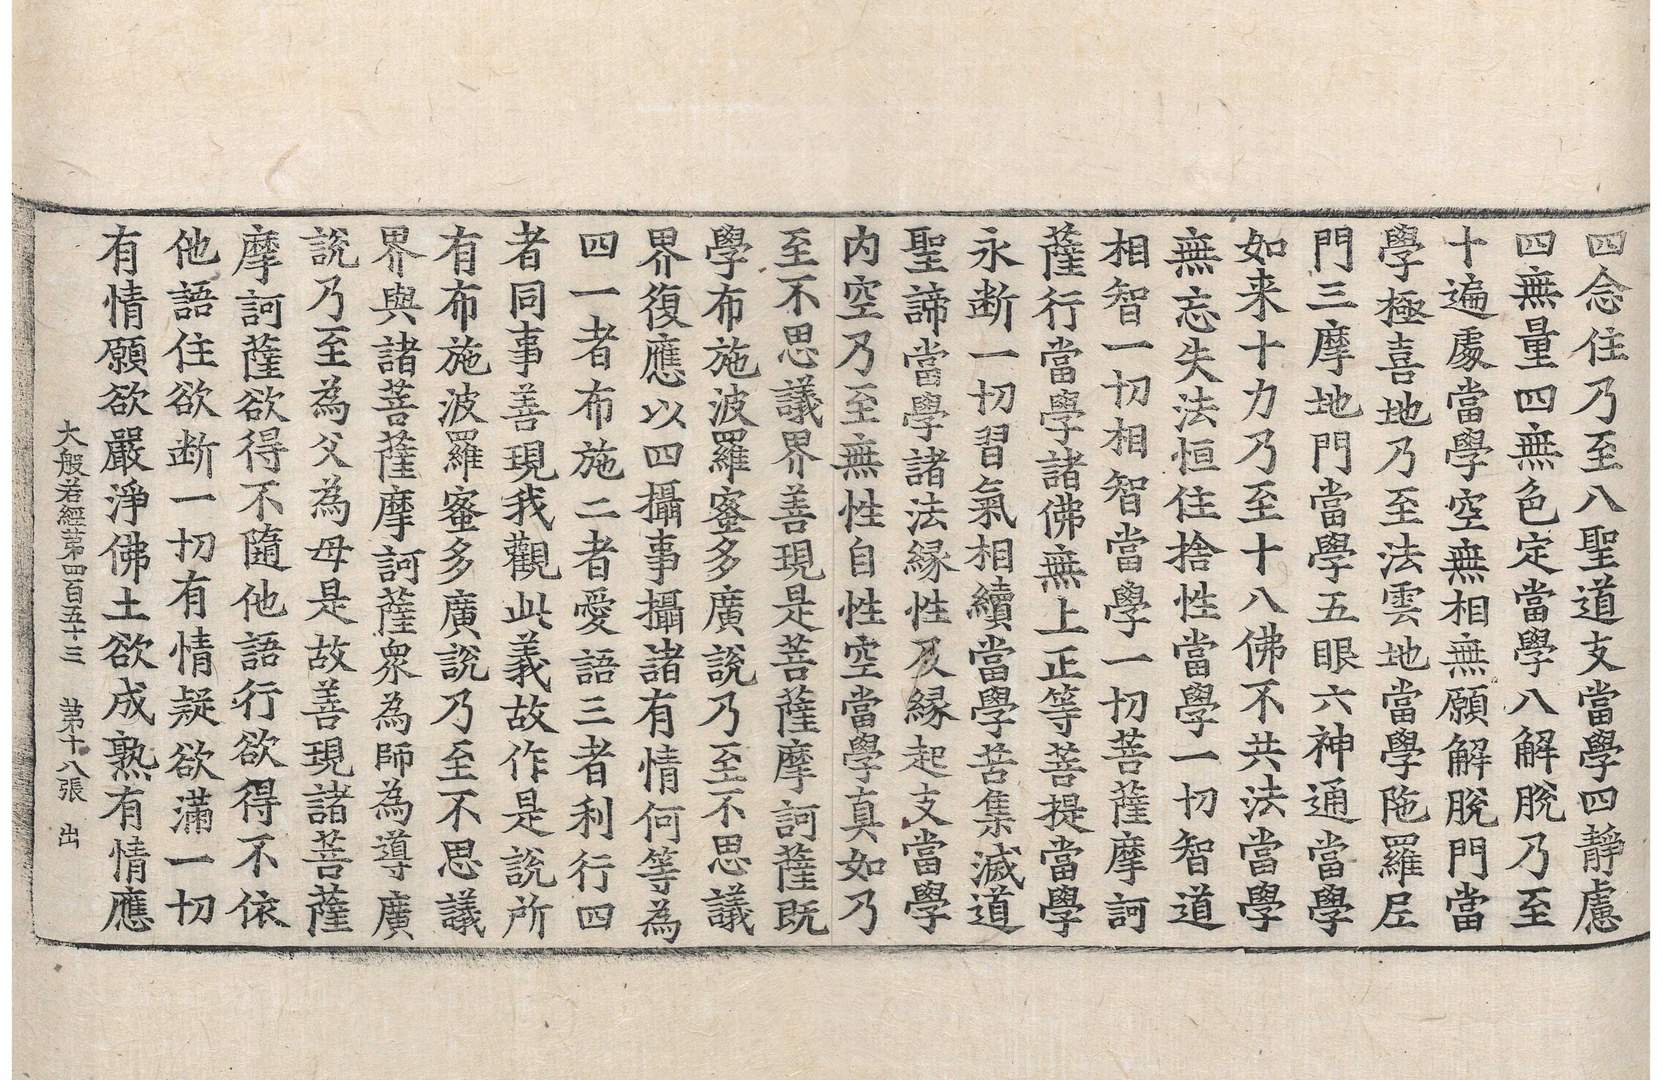 四念住乃至八聖道支當學四靜慮
四無量四無色定當學八解脫乃至
十遍處當學空無相無願解脫門當
學極喜地乃至法雲地當學陁羅尼
門三摩地門當學五眼六神通當學
如来十力乃至十八佛不共法當學
無忘失法恒住捨性當學一切智道
相智一切相智當學一切菩薩摩訶
薩行當學諸佛無上正等菩提當學
永斷一切習氣相續當學苦集滅道
聖諦當學諸法緣性及緣起支當學
内空乃至無性自性空當學真如乃
至不思議界善現是菩薩摩訶薩既
學布施波羅蜜多廣說乃至不思議
界復應以四攝事攝諸有情何等為
四一者布施二者愛語三者利行四
者同事善現我觀此義故作是說所
有布施波羅蜜多廣說乃至不思議
界與諸菩薩摩訶薩衆為師為導廣
說乃至為父為母是故善現諸菩薩
摩訶薩欲得不隨他語行欲得不依
他語住欲断一切有情疑欲滿一切
有情願欲嚴淨佛土欲成熟有情應
大般若經第四百五十三 第十八張 出